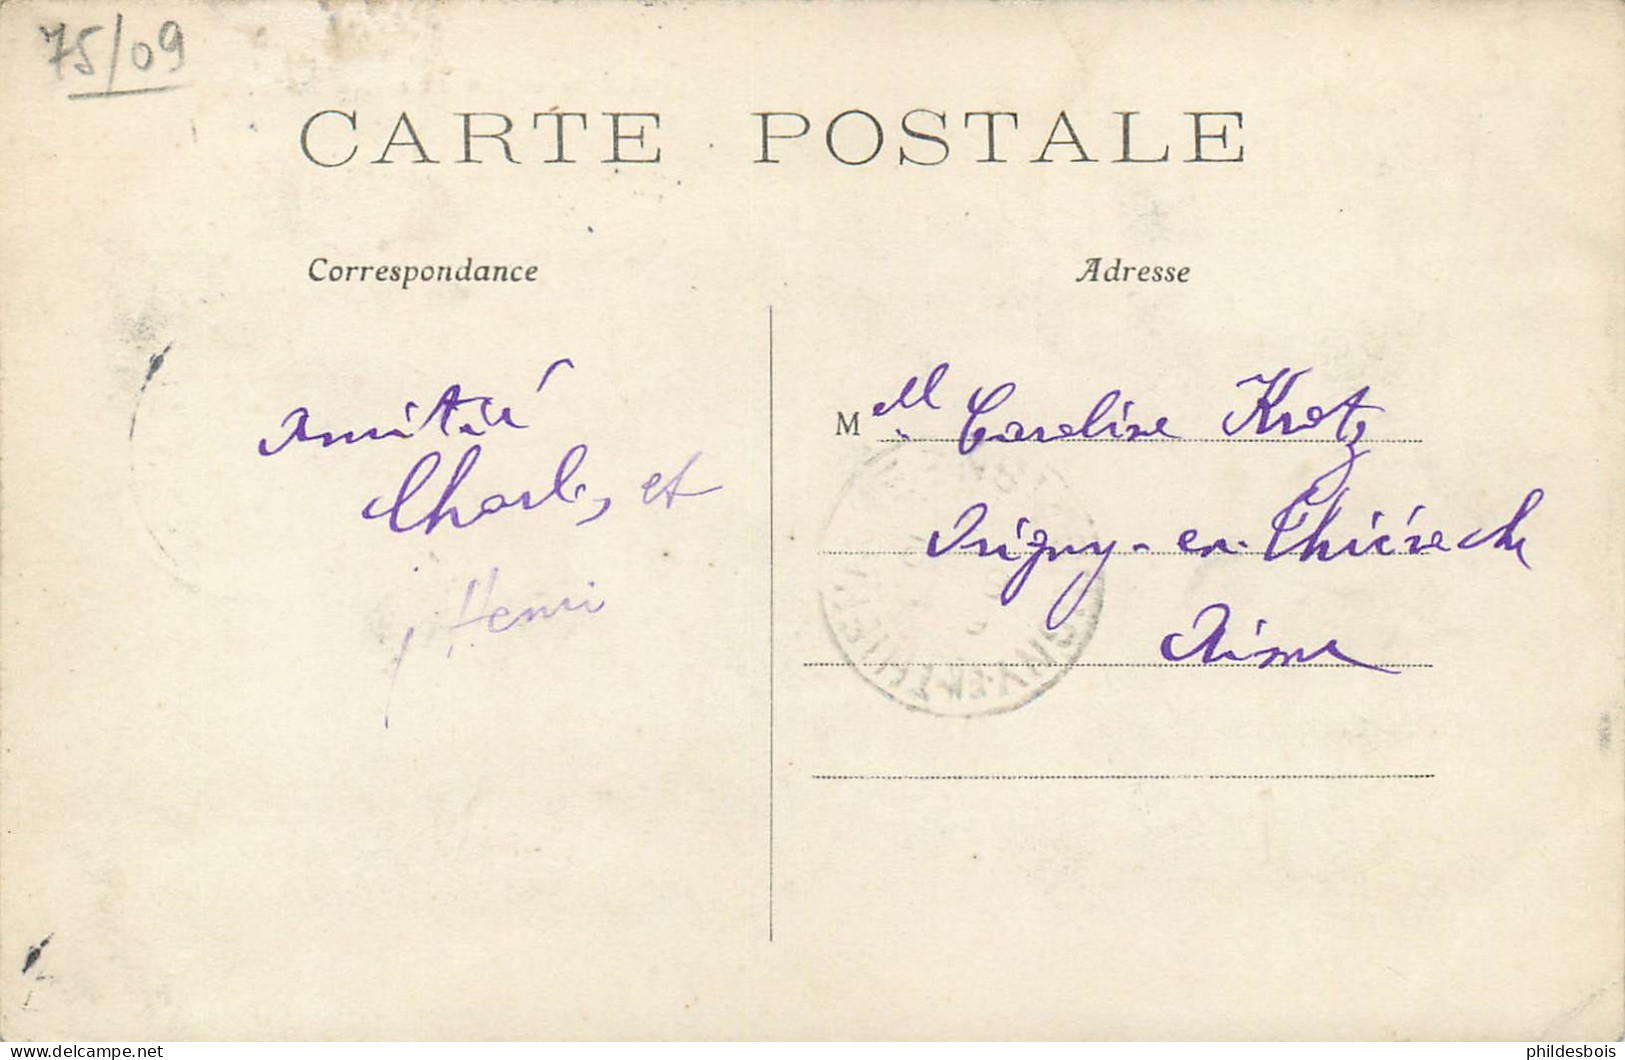 75/09
CARTE POSTALE
Correspondance
Adresse
Amitié
Charles et
Henri
Mell Caroline Krotz
Origny-en-Thiérache
Aisne
delcampe.net
phildesbois